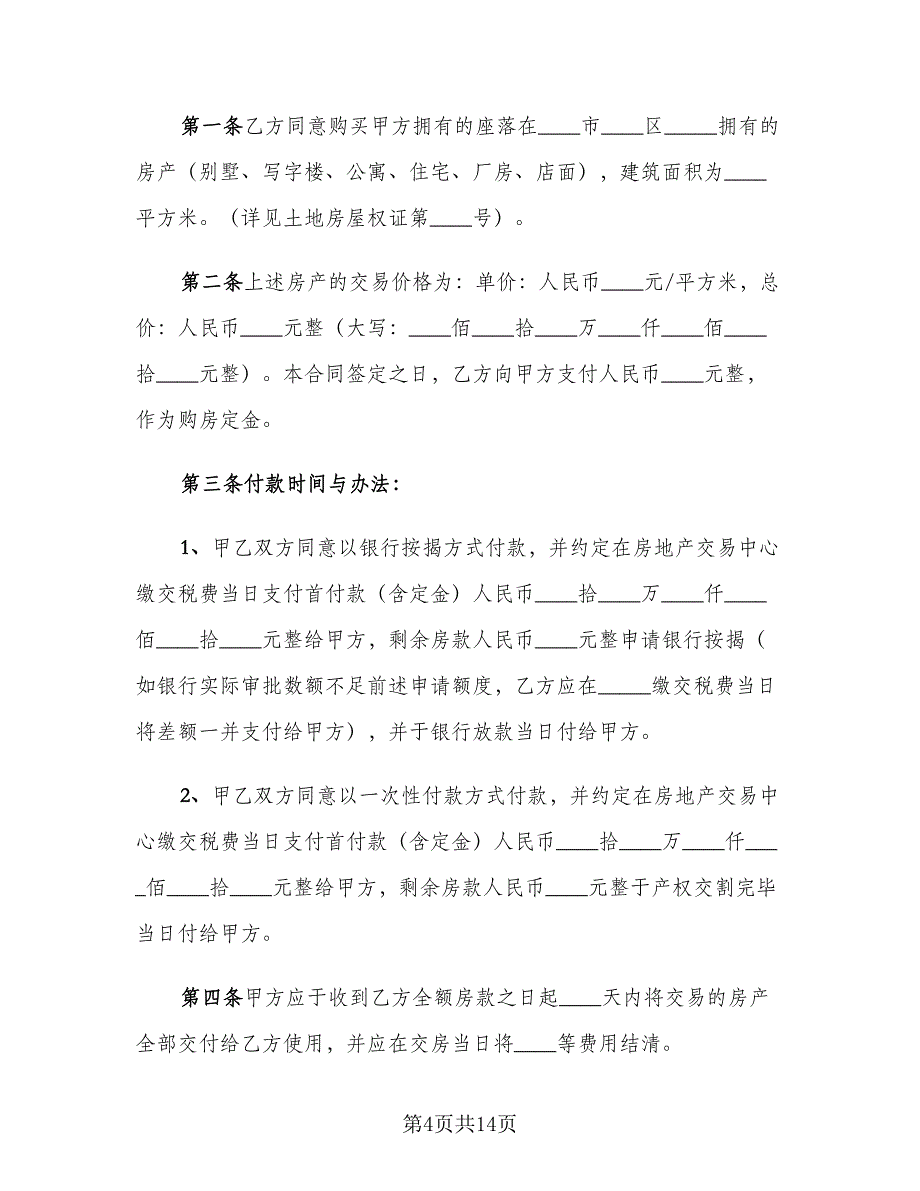 第一条乙方同意购买甲方拥有的座落在____市____区_____拥有的
房产（别墅、写字楼、公寓、住宅、厂房、店面），建筑面积为____
平方米。（详见土地房屋权证第____号）。
第二条上述房产的交易价格为：单价：人民币____元/平方米，总
价：人民币____元整（大写：____佰____拾____万____仟____佰____
拾____元整）。本合同签定之日，乙方向甲方支付人民币____元整，
作为购房定金。
第三条付款时间与办法：
1、甲乙双方同意以银行按揭方式付款，并约定在房地产交易中心
缴交税费当日支付首付款（含定金）人民币____拾____万____仟____
佰____拾____元整给甲方，剩余房款人民币____元整申请银行按揭（
如银行实际审批数额不足前述申请额度，乙方应在_____缴交税费当日
将差额一并支付给甲方），并于银行放款当日付给甲方。
2、甲乙双方同意以一次性付款方式付款，并约定在房地产交易中
心缴交税费当日支付首付款（含定金）人民币____拾____万____仟___
_佰____拾____元整给甲方，剩余房款人民币____元整于产权交割完毕
当日付给甲方。
第四条甲方应于收到乙方全额房款之日起____天内将交易的房产
全部交付给乙方使用，并应在交房当日将____等费用结清。
第4页共14页